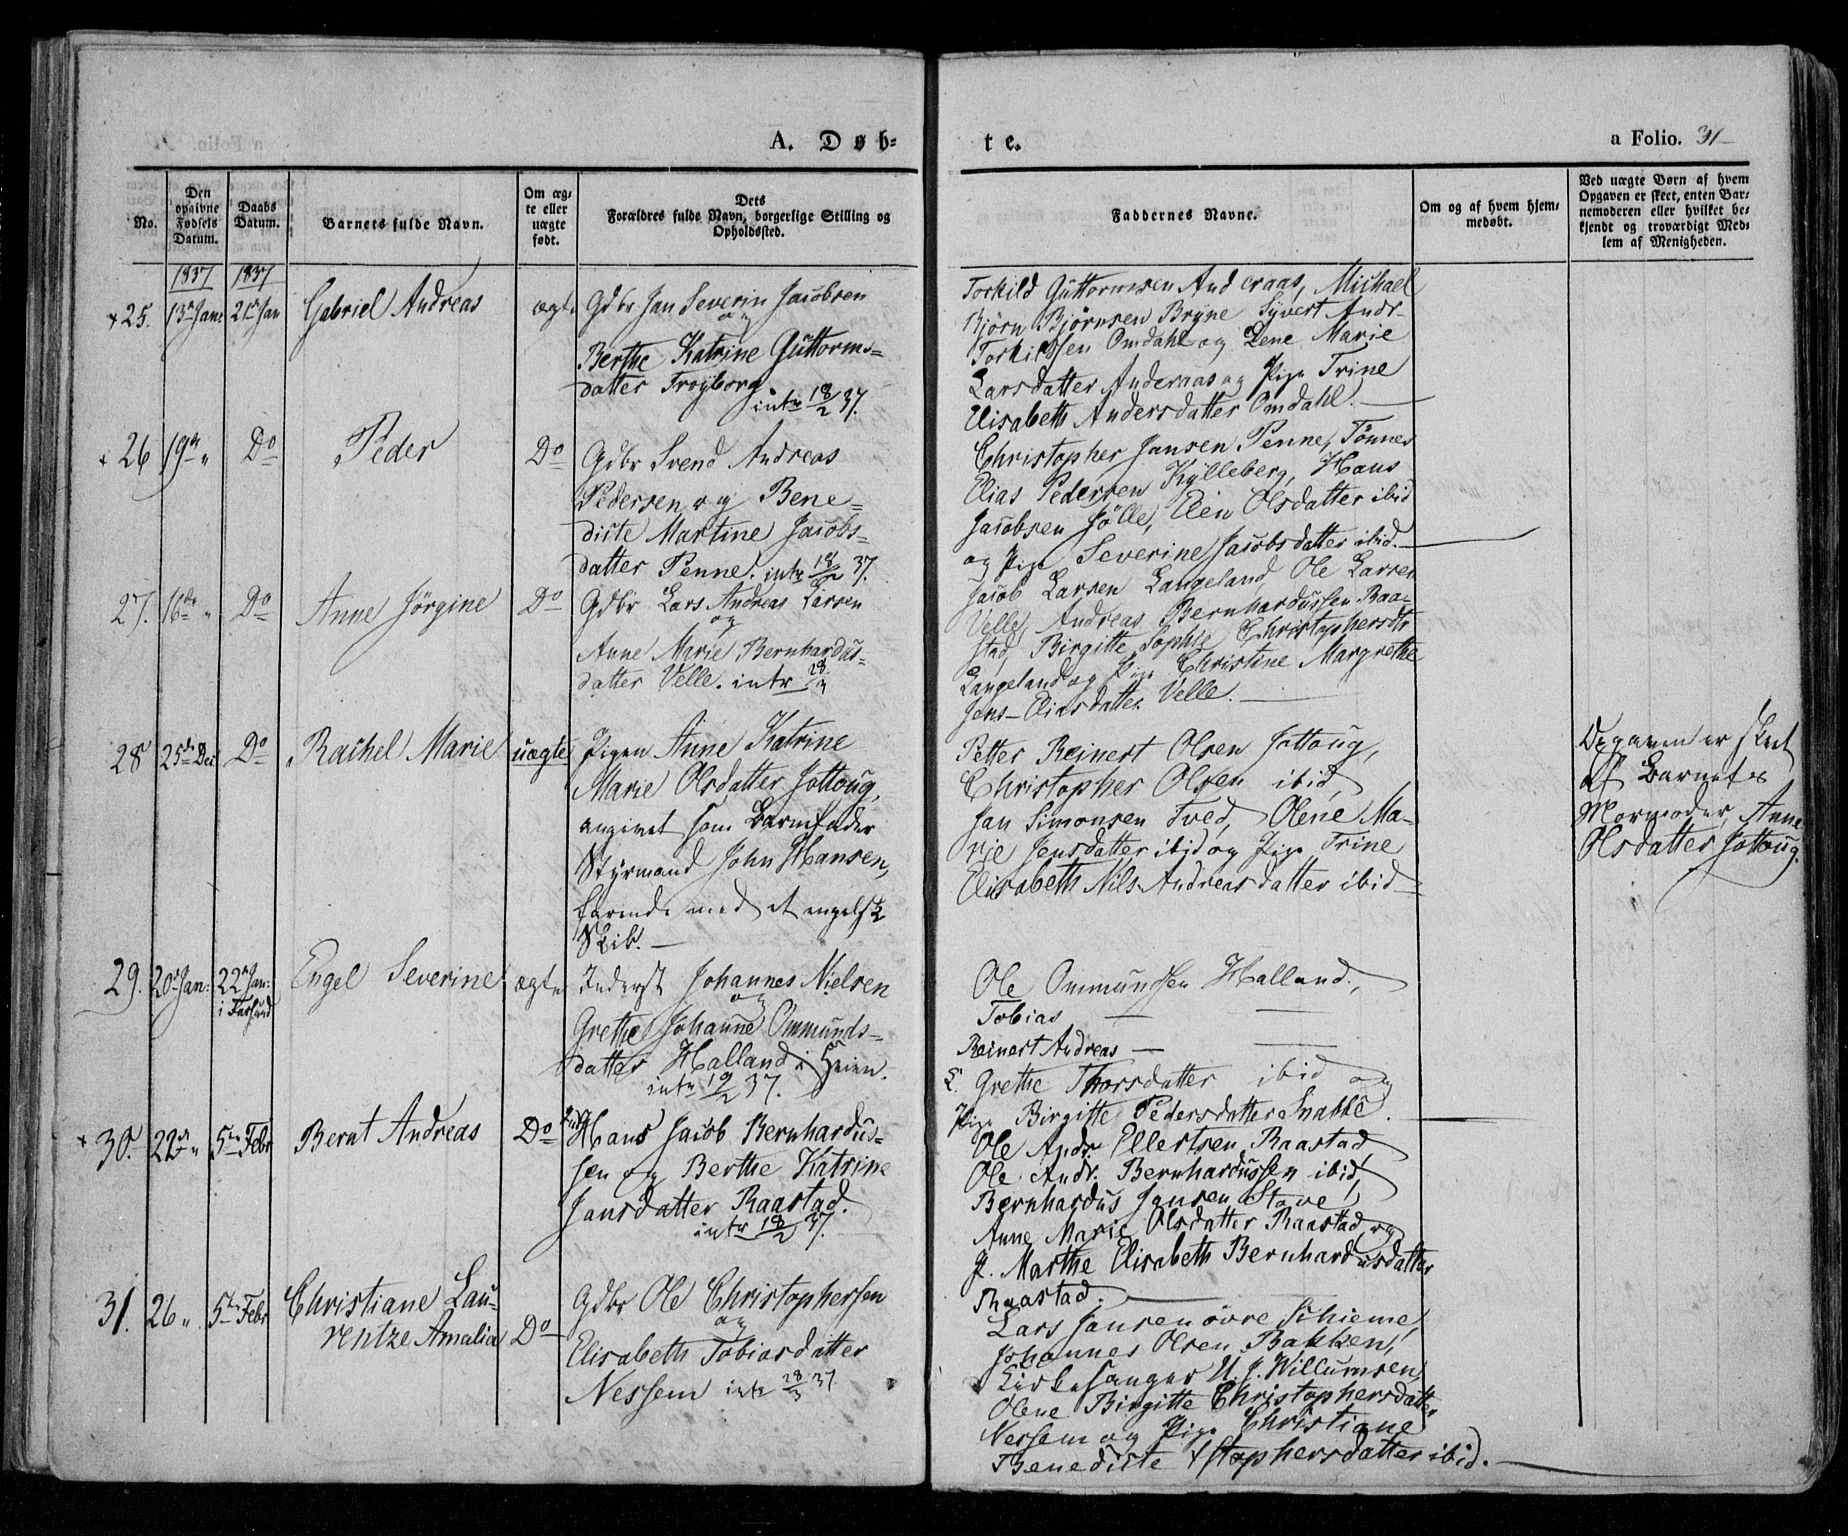 A. Døb-
te.
a Folio. 31
No.
Den opgivne Fødsels Datum.
Daabs Datum.
Barnets fulde Navn.
Om ægte eller uægte født.
Dets Forældres fulde Navn, borgerlige Stilling og Opholdssted.
Faddernes Navne.
Om og af hvem hjemmedøbt.
Ved uægte Børn af hvem Opgaven er skeet, enten Barnemoderen eller hvilket bekjendt og troværdigt Medlem af Menigheden.
1837 1837
25. 13de Jan: 21de Jan Gabriel Andreas ægte
Gdbr Jan Severin Jacobsen
og
Berthe Katrine Guttorms=
datter Trøyborg
intr 18/2 37.
Torkild Guttormsen Anderaas, Michael
Bjørn Bjørnsen Bryne Syvert Andr-
Torkildsen Omdahl og Lene Marie
Larsdatter Anderaas og Pige Trine
Elisabeth Andersdatter Omdahl.
26 19de " Do Peder Do
Gdbr Svend Andreas
Pedersen og Bene=
dicte Martine Jacobs=
datter Penne. intr 18/2 37.
Christopher Jansen Penne, Tønnes
Elias Pedersen Kylleberg, Hans
Jacobsen Jølle, Elen Olsdatter ibid
og Pige Severine Jacobsdatter ibid.
27. 16de " Do Anne Jørgine Do
Gdbr Lars Andreas Larsen
og
Anne Marie Bernhardus=
datter Velle. intr
Jacob Larsen Langeland, Ole Larsen
Velle, Andreas Bernhardussen Raa=
stad, Birgitte Sophie Christophersdtr
Langeland og Pige Christine Margrethe
Jens-Eliasdatter Velle.
28 25de Dec Do Rachel Marie uægte
Pigen Anne Katrine
Marie Olsdatter Jottoug,
angivet som Barnefader
Styrmand John Hansen,
farende med et engelsk
Skib.
Petter Reinert Olsen Jottoug,
Christopher Olsen ibid,
Jan Simonsen Tved, Olene Ma-
rie Jensdatter ibid og Pige Trine
Elisabeth Nils-Andreasdatter ibid
Opgaven er skeet
af Barnets
Mormoder, Anne
Olsdatter Jottoug.
29. 20de Jan: 22de Jan: Engel Severine ægte
i Farsund
Inderst Johannes Nielsen
og
Grethe Johanne Ommunds=
datter Halland i Heien.
intr 19/2 37.
Ole Ommundsen Halland,
Tobias — —
Reinert Andreas — —
Grethe Thorsdatter ibid og
Pige Birgitte Pedersdatter
30. 22de " 5te Febr Bernt Andreas Do
Hans Jacob Bernhardus=
sen og Berthe Katrine
Jansdatter Raastad.
intr 18/2 37.
Ole Andr. Ellertsen Raastad,
Ole Andr. Bernhardussen ibid,
Bernhardus Jansen Stave,
Anne Marie Olsdatter Raastad og
P. Marthe Elisabeth Bernhardusdatter
Raastad.
31. 26 " 5te Febr Christiane Lau=
rentze Amalia Do
Gdbr Ole Christophersen
og
Elisabeth Tobiasdatter
Nessem intr 28/3 37.
Lars Jansen øvre Skieme,
Johannes Olsen Bakken,
Kirkesanger U. J. Willumsen,
Olene Birgitte Christophersdatter
Nessem og Pige Christiane
Benedicte Xstophersdatter ibid.